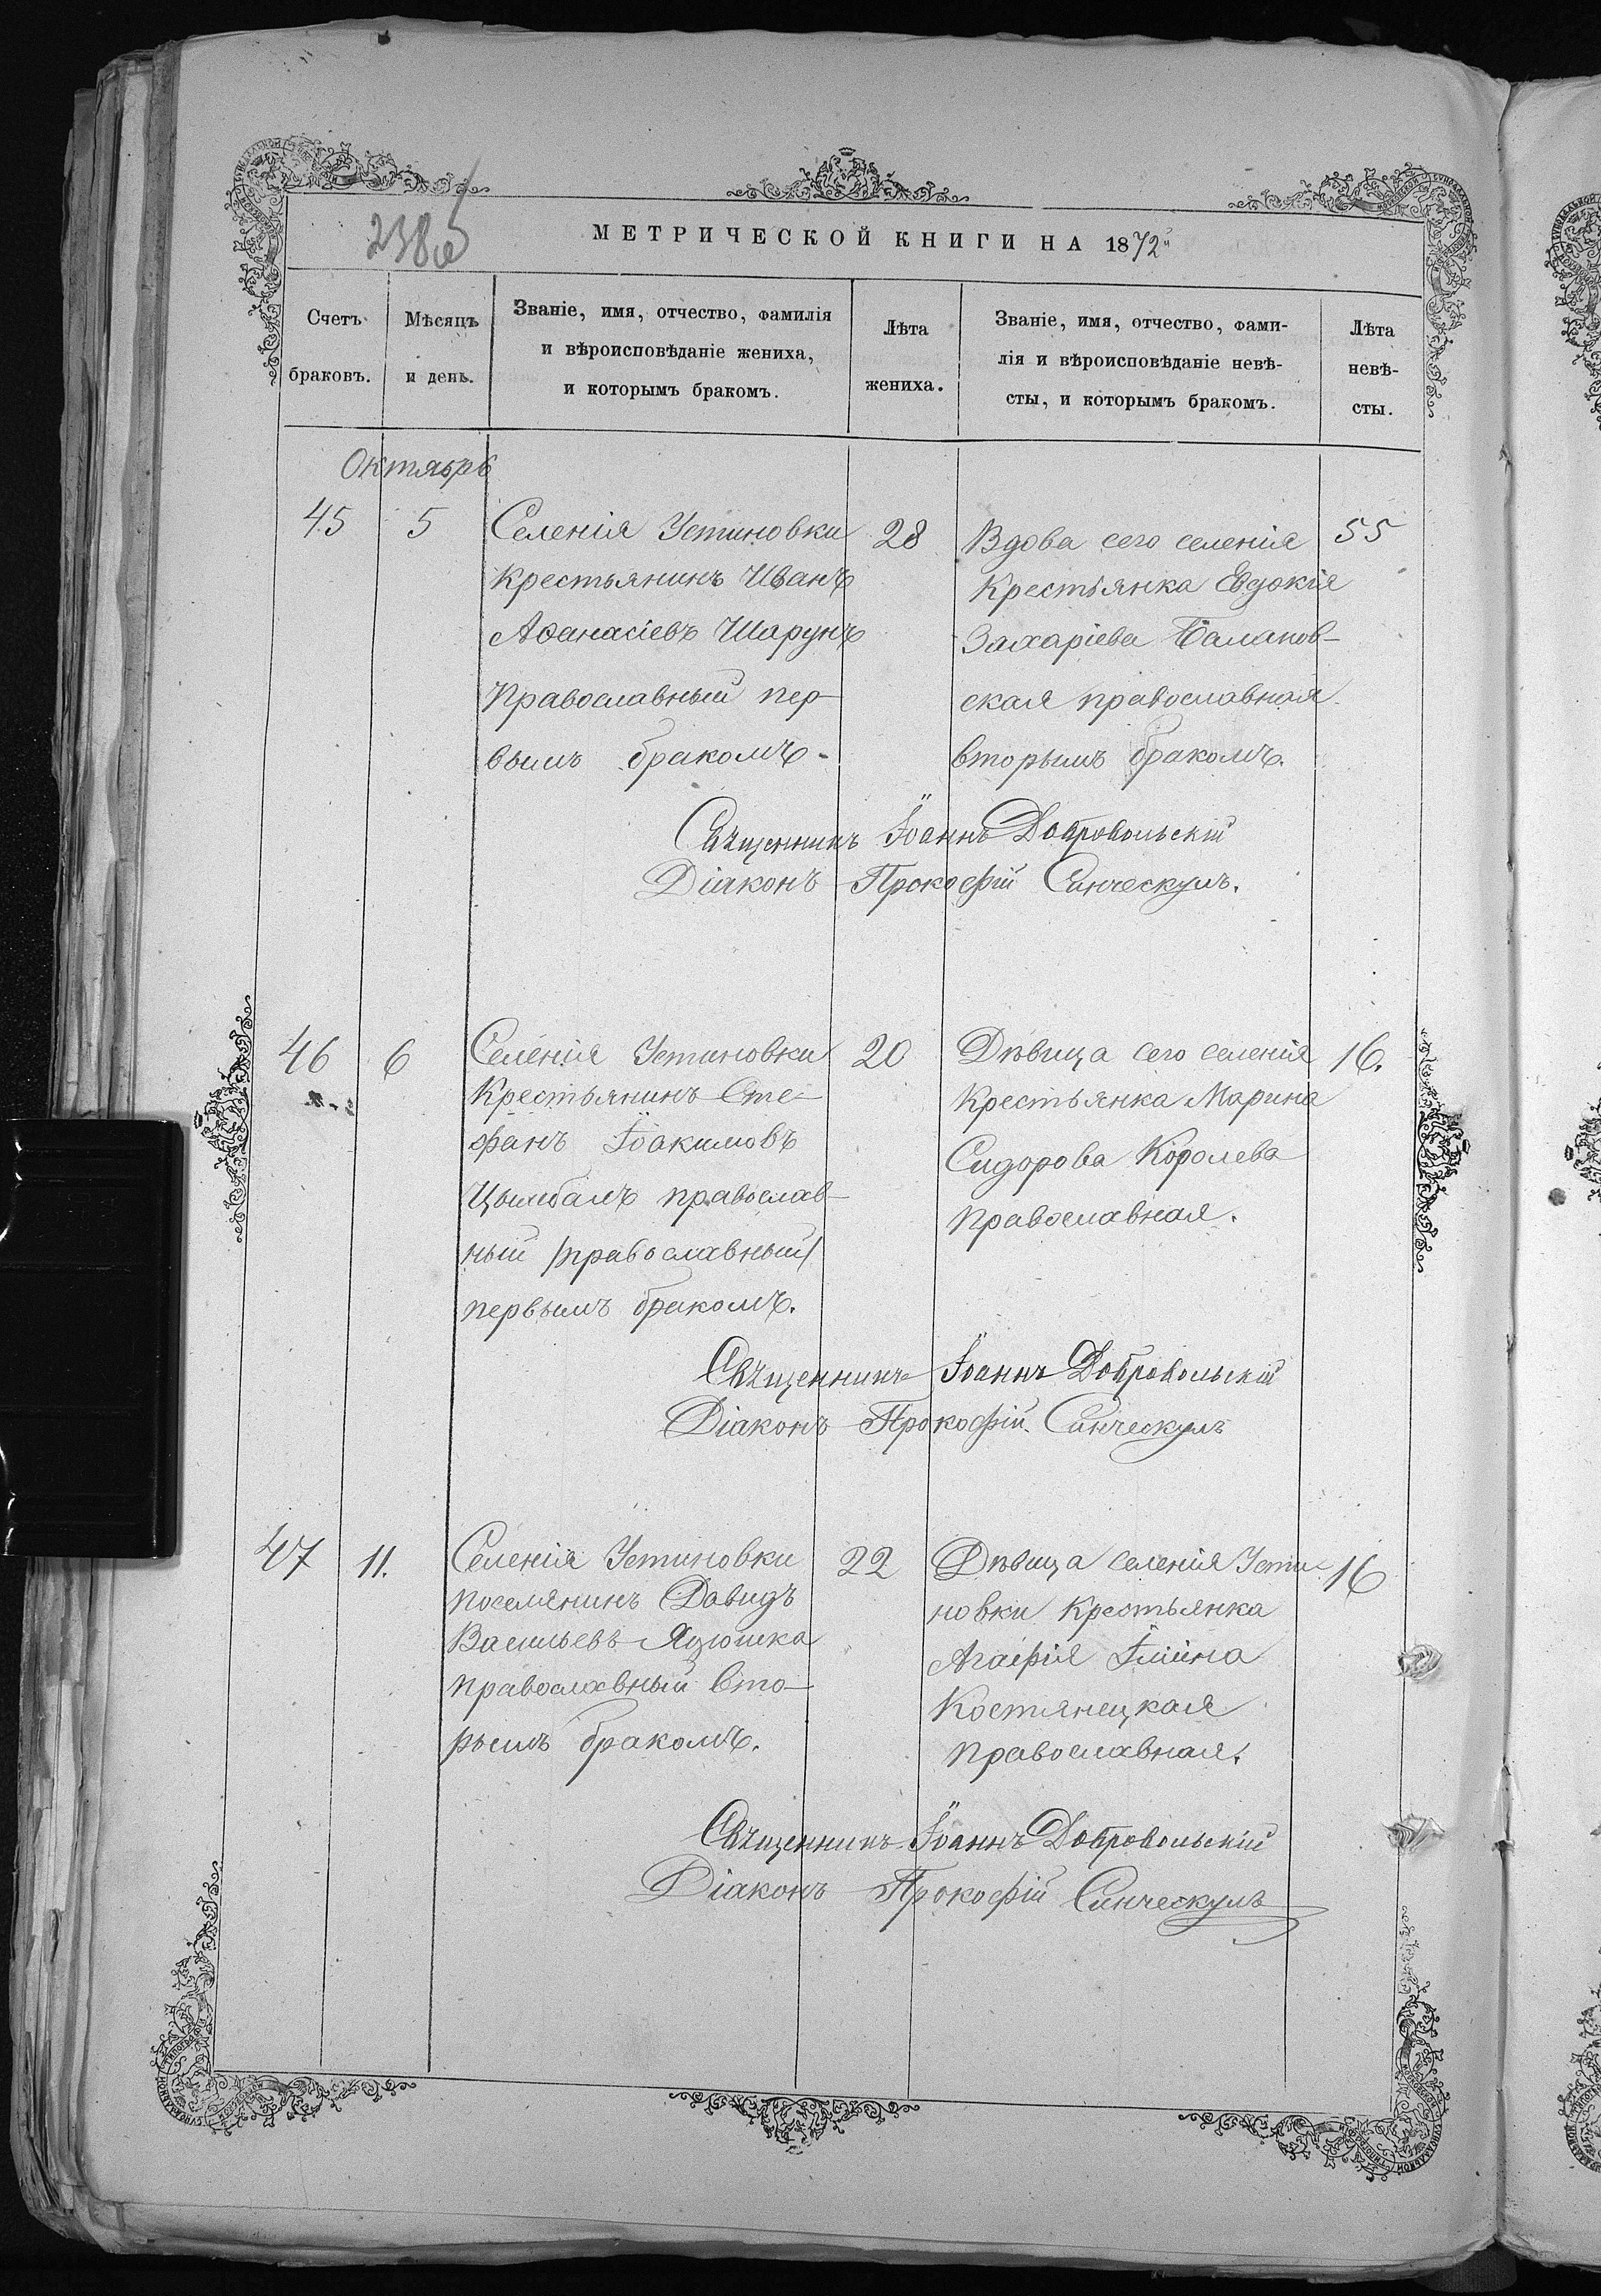 238об
МЕТРИЧЕСКОЙ КНИГИ НА 1872й
Счетъ браковъ.
Мѣсяцъ и день.
Званіе, имя, отчество, фамилія
и вѣроисповѣданіе жениха,
и которымъ бракомъ.
Лѣта
жениха.
Званіе, имя, отчество, фами-
лія и вѣроисповѣданіе невѣ-
сты, и которымъ бракомъ.
Лѣта
невѣ-
сты.
Октябрь
45
5
Селенія Устиновки
Крестьянинъ Иванъ
Аѳанасіевъ Шарунъ
Православный пер-
вымъ бракомъ.
28
Вдова сего селенія
Крестьянка Евдокія
Захаріева Баланов-
ская православная
вторымъ бракомъ.
55
Священникъ Іоаннъ Добровольскій
Діаконъ Прокофій Синческулъ.
46
6
Селенія Устиновки
Крестьянинъ Сте-
фанъ Іоакимовъ
Цымбалъ православ-
ный /православный/
первымъ бракомъ.
20
Дѣвица сего селенія
Крестьянка Марина
Сидорова Королева
Православная.
16.
Священникъ Іоаннъ Добровольскій
Діаконъ Прокофій Синческулъ
47
11.
Селенія Устиновки
поселянинъ Давидъ
Васильевъ Яцюшка
православный вто-
рымъ бракомъ.
22
Дѣвица селенія Усти-
новки Крестьянка
Агафія Іліина
Костянецкая
Православная.
16
Священникъ Іоаннъ Добровольскій
Діаконъ Прокофій Синческулъ